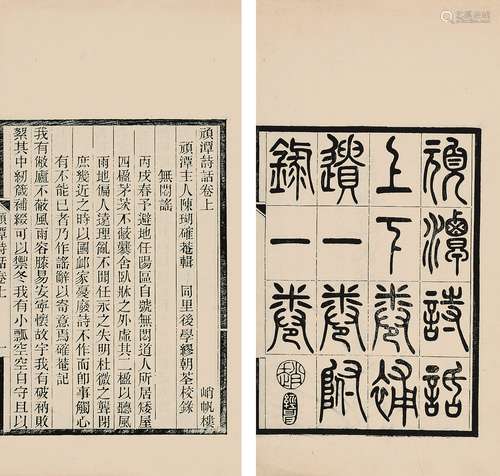 頑潭詩話
上下卷補
遺一卷附
錄一卷
頑潭詩話卷上 峭帆樓
頑潭主人陳瑚確菴輯 同里後學繆朝荃校錄
無悶謠
丙戌春予避地任陽區自號無悶道人所居矮屋
四楹茅茨不蔽爨舍臥牀之外虛其二楹以聽風
雨地偏人遠理亂不聞任永之失明杜微之聾閉
庶幾近之時以國卹家憂廢詩不作而卽事觸心
有不能已者乃作謠辭以寄意焉確菴記
我有敝廬不破風雨容膝易安寧懷故宇我有破衲敗
絮其中紉箴補綴可以禦冬我有小瓢空空自守且以
頑潭詩話卷上 一